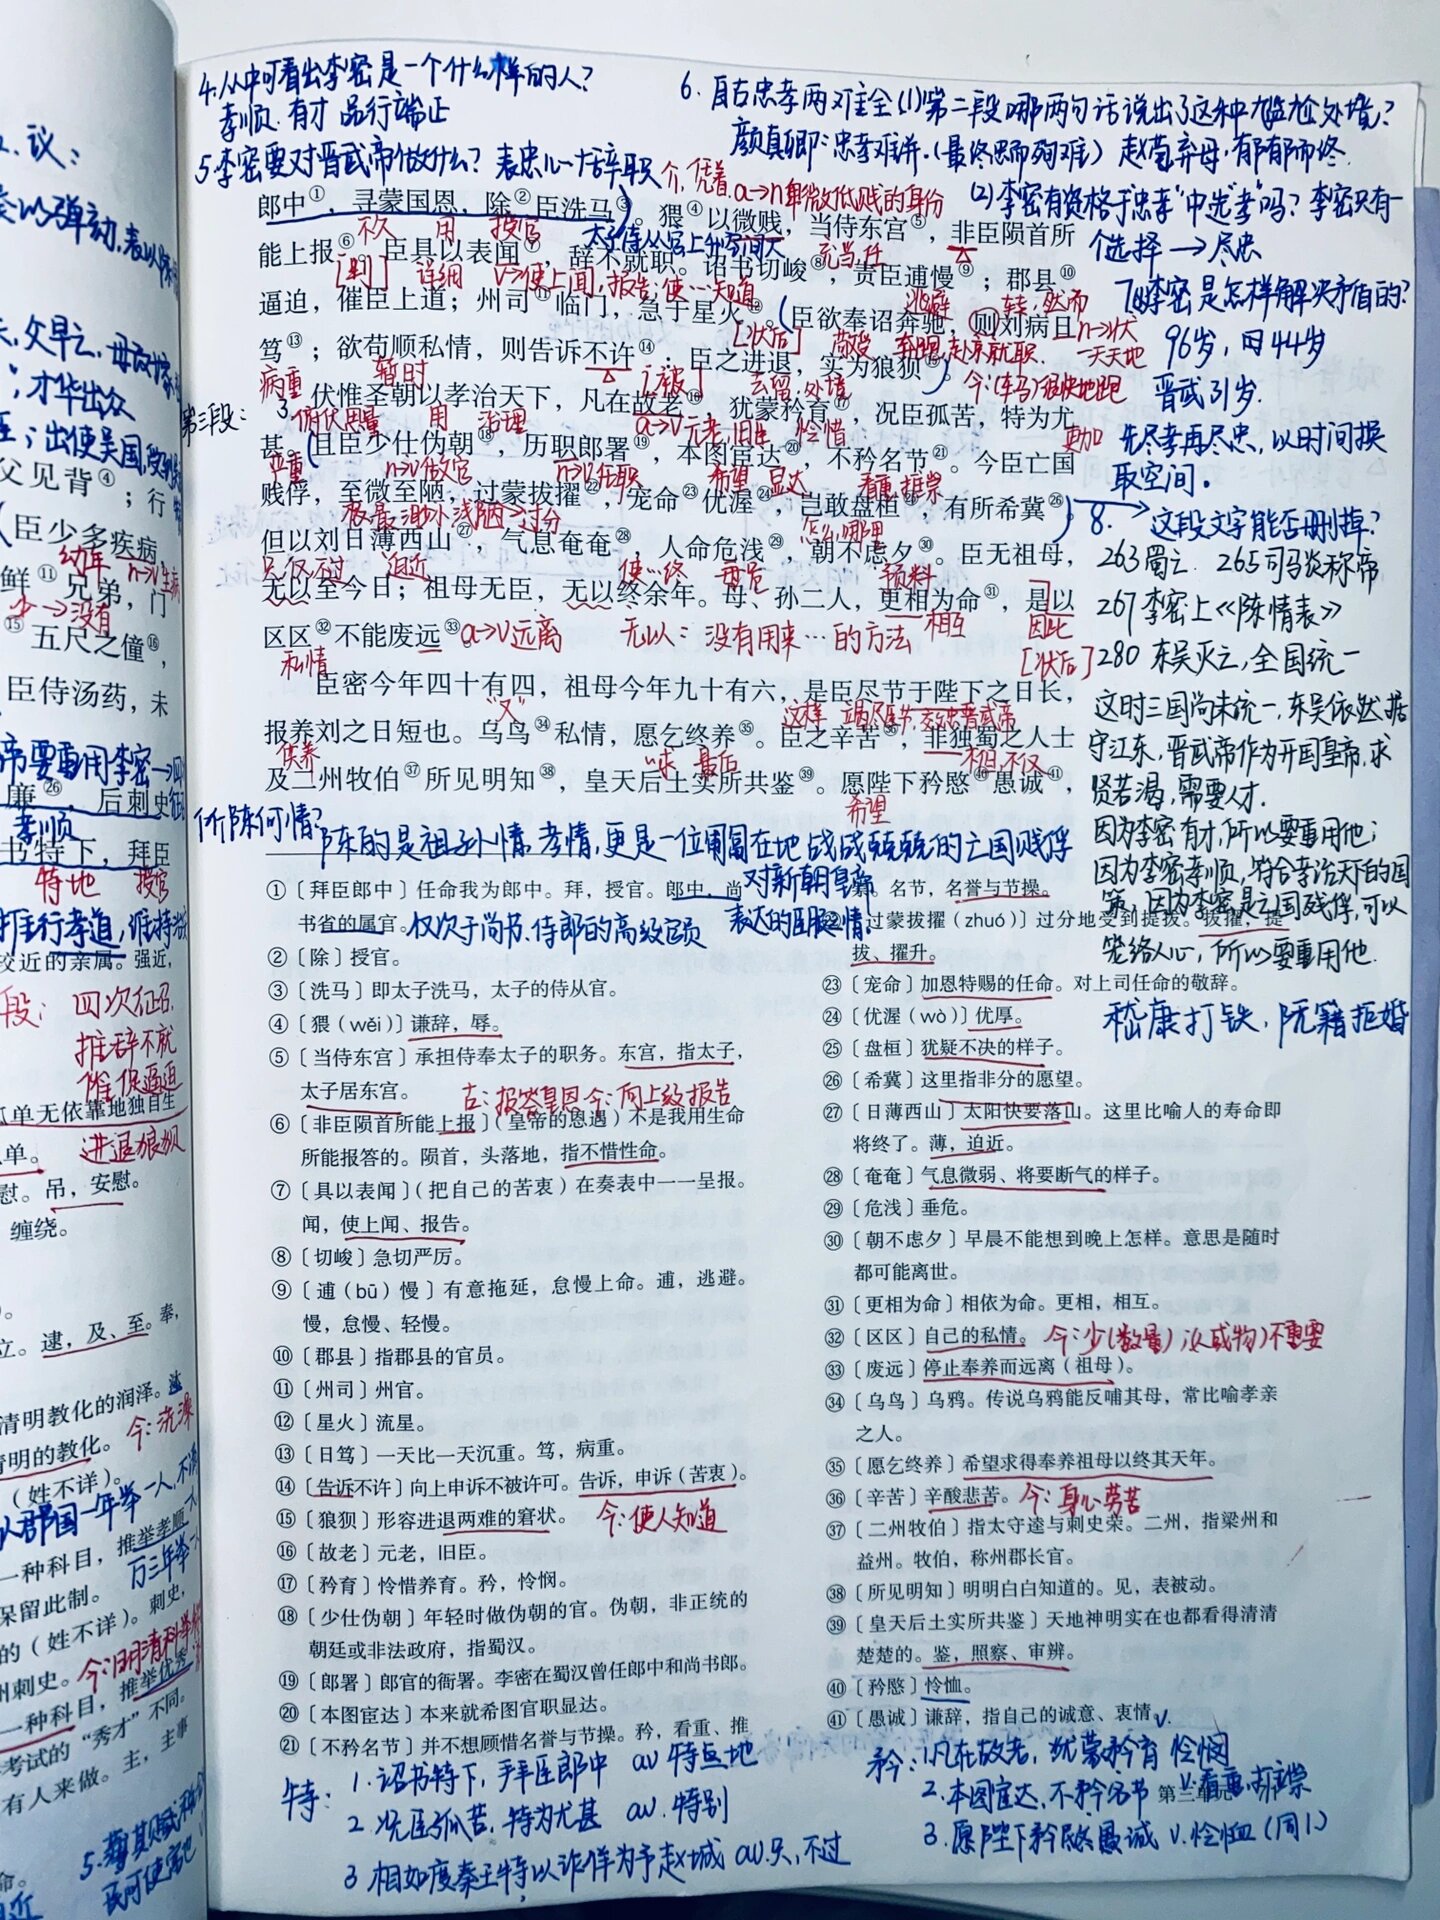 4.从中可看出李密是一个什么样的人?
孝顺.有才 品行端正
5.李密要对晋武帝做什么? 表忠心十辞职
6.自古忠孝两难全(1)第二段哪两句话说出了这种尴尬处境?
颜真卿:忠孝难并.(最终忠而殉难) 赵苞弃母,郁郁而终.
(2)李密有资格于忠孝"中选"孝"吗?李密只有一
个选择→尽忠
7.李密是怎样解决矛盾的?
96岁,
44岁
晋武31岁.
先尽孝再尽忠,以时间换
取空间。
8.→这段文字能否删掉?
263蜀亡. 265司马炎称帝
267李密上《陈情表》
280 东吴灭亡,全国统一
这时三国尚未统一,东吴依然据
守江东,晋武帝作为开国皇帝,求
贤若渴,需要人才.
因为李密有才,所以要重用他;
因为李密孝顺,符合孝治天下的国
策,因为李密是亡国贱俘,可以
笼络人心,所以要重用他.
嵇康打铁,阮籍拒婚
介,凭着 a→n卑微低贱的身份
郎中①,寻蒙国恩,除②臣洗马③。猥④以微贱,当侍东宫⑤,非臣陨首所
不久 用 授官
太子侍从
充当 任
能上报⑥。臣具以表闻⑦,辞不就职。诏书切峻⑧,责臣逋慢⑨;郡县⑩
详细 v→使上闻,报告;使…知道
逃避 转:然而
逼迫,催臣上道;州司⑪临门,急于星火⑫。臣欲奉诏奔驰,则刘病日
[状后]
赴京就职. 一天天地
n→状
笃⑬;欲苟顺私情,则告诉不许⑭:臣之进退,实为狼狈⑮。
病重 暂时 [被] 去留,处境 今:(车马)很快地跑
第三段: 3.
伏惟圣朝以孝治天下,凡在故老⑯,犹蒙矜育⑰,况臣孤苦,特为尤
俯伏思量 用 治理 a→v 元老,旧臣 怜惜 更加
甚。且臣少仕伪朝⑱,历职郎署⑲,本图宦达⑳,不矜名节㉑。今臣亡国
严重 n→v做官 n→v任职 希望 显达 看重,推崇
贱俘,至微至陋,过蒙拔擢㉒,宠命㉓优渥㉔,岂敢盘桓㉕,有所希冀㉖。
极,最 浅陋 过分 怎么,哪里
但以刘日薄西山㉗,气息奄奄㉘,人命危浅㉙,朝不虑夕㉚。臣无祖母,
只,仅,不过 迫近 使…终 预料
无以至今日;祖母无臣,无以终余年。母、孙二人,更相为命㉛,是以
相互 因此
区区㉜不能废远㉝。
私情 a→v远离 无以:没有用来…的方法
[状后]
臣密今年四十有四,祖母今年九十有六,是臣尽节于陛下之日长,
"又" 这样
报养刘之日短也。乌鸟㉞私情,愿乞终养㉟。臣之辛苦㊱,非独蜀之人士
供养 求 最后 不仅
及二州牧伯㊲所见明知㊳,皇天后土实所共鉴㊴。愿陛下矜愍㊵愚诚㊶,
希望
陈何情?
陈的是祖孙情.孝情,更是一位匍匐在地战战兢兢的亡国贱俘
对新朝皇帝
表达的臣服情.
①〔拜臣郎中〕任命我为郎中。拜,授官。郎中,尚
书省的属官。仅次于尚书.侍郎的高级官员
②〔除〕授官。
③〔洗马〕即太子洗马,太子的侍从官。
④〔猥(wěi)〕谦辞,辱。
⑤〔当侍东宫〕承担侍奉太子的职务。东宫,指太子,
太子居东宫。
古:报答皇恩 今:向上级报告
⑥〔非臣陨首所能上报〕(皇帝的恩遇)不是我用生命
所能报答的。陨首,头落地,指不惜性命。
⑦〔具以表闻〕(把自己的苦衷)在奏表中一一呈报。
闻,使上闻、报告。
⑧〔切峻〕急切严厉。
⑨〔逋(bū)慢〕有意拖延,怠慢上命。逋,逃避。
慢,怠慢、轻慢。
⑩〔郡县〕指郡县的官员。
⑪〔州司〕州官。
⑫〔星火〕流星。
⑬〔日笃〕一天比一天沉重。笃,病重。
⑭〔告诉不许〕向上申诉不被许可。告诉,申诉(苦衷)。
⑮〔狼狈〕形容进退两难的窘状。 今:使人知道
⑯〔故老〕元老,旧臣。
⑰〔矜育〕怜惜养育。矜,怜悯。
⑱〔少仕伪朝〕年轻时做伪朝的官。伪朝,非正统的
朝廷或非法政府,指蜀汉。
⑲〔郎署〕郎官的衙署。李密在蜀汉曾任郎中和尚书郎。
⑳〔本图宦达〕本来就希图官职显达。
㉑〔不矜名节〕并不想顾惜名誉与节操。矜,看重、推
崇。名节,名誉与节操。
㉒〔过蒙拔擢(zhuó)〕过分地受到提拔。拔擢,提
拔、擢升。
㉓〔宠命〕加恩特赐的任命。对上司任命的敬辞。
㉔〔优渥(wò)〕优厚。
㉕〔盘桓〕犹疑不决的样子。
㉖〔希冀〕这里指非分的愿望。
㉗〔日薄西山〕太阳快要落山。这里比喻人的寿命即
将终了。薄,迫近。
㉘〔奄奄〕气息微弱、将要断气的样子。
㉙〔危浅〕垂危。
㉚〔朝不虑夕〕早晨不能想到晚上怎样。意思是随时
都可能离世。
㉛〔更相为命〕相依为命。更相,相互。
㉜〔区区〕自己的私情。 今:少(数量);(人或物)不重要
㉝〔废远〕停止奉养而远离(祖母)。
㉞〔乌鸟〕乌鸦。传说乌鸦能反哺其母,常比喻孝亲
之人。
㉟〔愿乞终养〕希望求得奉养祖母以终其天年。
㊱〔辛苦〕辛酸悲苦。 今:身心劳苦
㊲〔二州牧伯〕指太守逵与刺史荣。二州,指梁州和
益州。牧伯,称州郡长官。
㊳〔所见明知〕明明白白知道的。见,表被动。
㊴〔皇天后土实所共鉴〕天地神明实在也都看得清清
楚楚的。鉴,照察、审辨。
㊵〔矜愍〕怜恤。
㊶〔愚诚〕谦辞,指自己的诚意、衷情。
特: 1.诏书特下,拜臣郎中 av 特点地
2.况臣孤苦,特为尤甚 av.特别
3 相如度秦王特以诈佯为予赵城 av.只,不过
矜: 1.凡在故老,犹蒙矜育 v.怜悯
2.本图宦达,不矜名节 v.看重,推崇
3.愿陛下矜愍愚诚 v.怜恤(同1)
第三单元
议:
父早亡
;才华出众
;出使吴国
父见背④;行
臣少多疾病
幼年 n→v生病
鲜⑪兄弟,门
少→没有
⑮五尺之僮⑯,
臣侍汤药,未
帝要重用李密→
廉㉖,后刺史
孝顺
书特下,拜臣
特地 授官
推行孝道,维持
较近的亲属。强近,
段: 四次征召,
推辞不就
催促逼迫
孤单无依靠地独自生
单。 进退狼狈
慰。吊,安慰。
缠绕。
立。逮,及、至。奉,
清明教化的润泽。沐
清明的教化。 今:洗澡
(姓不详)。
郡国一年举一人,
一种科目,推举孝顺
保留此制。
的(姓不详)。刺史,
州刺史。 今:明清科举
一种科目,推举优秀
考试的“秀才”不同。
有人来做。主,主事
命。